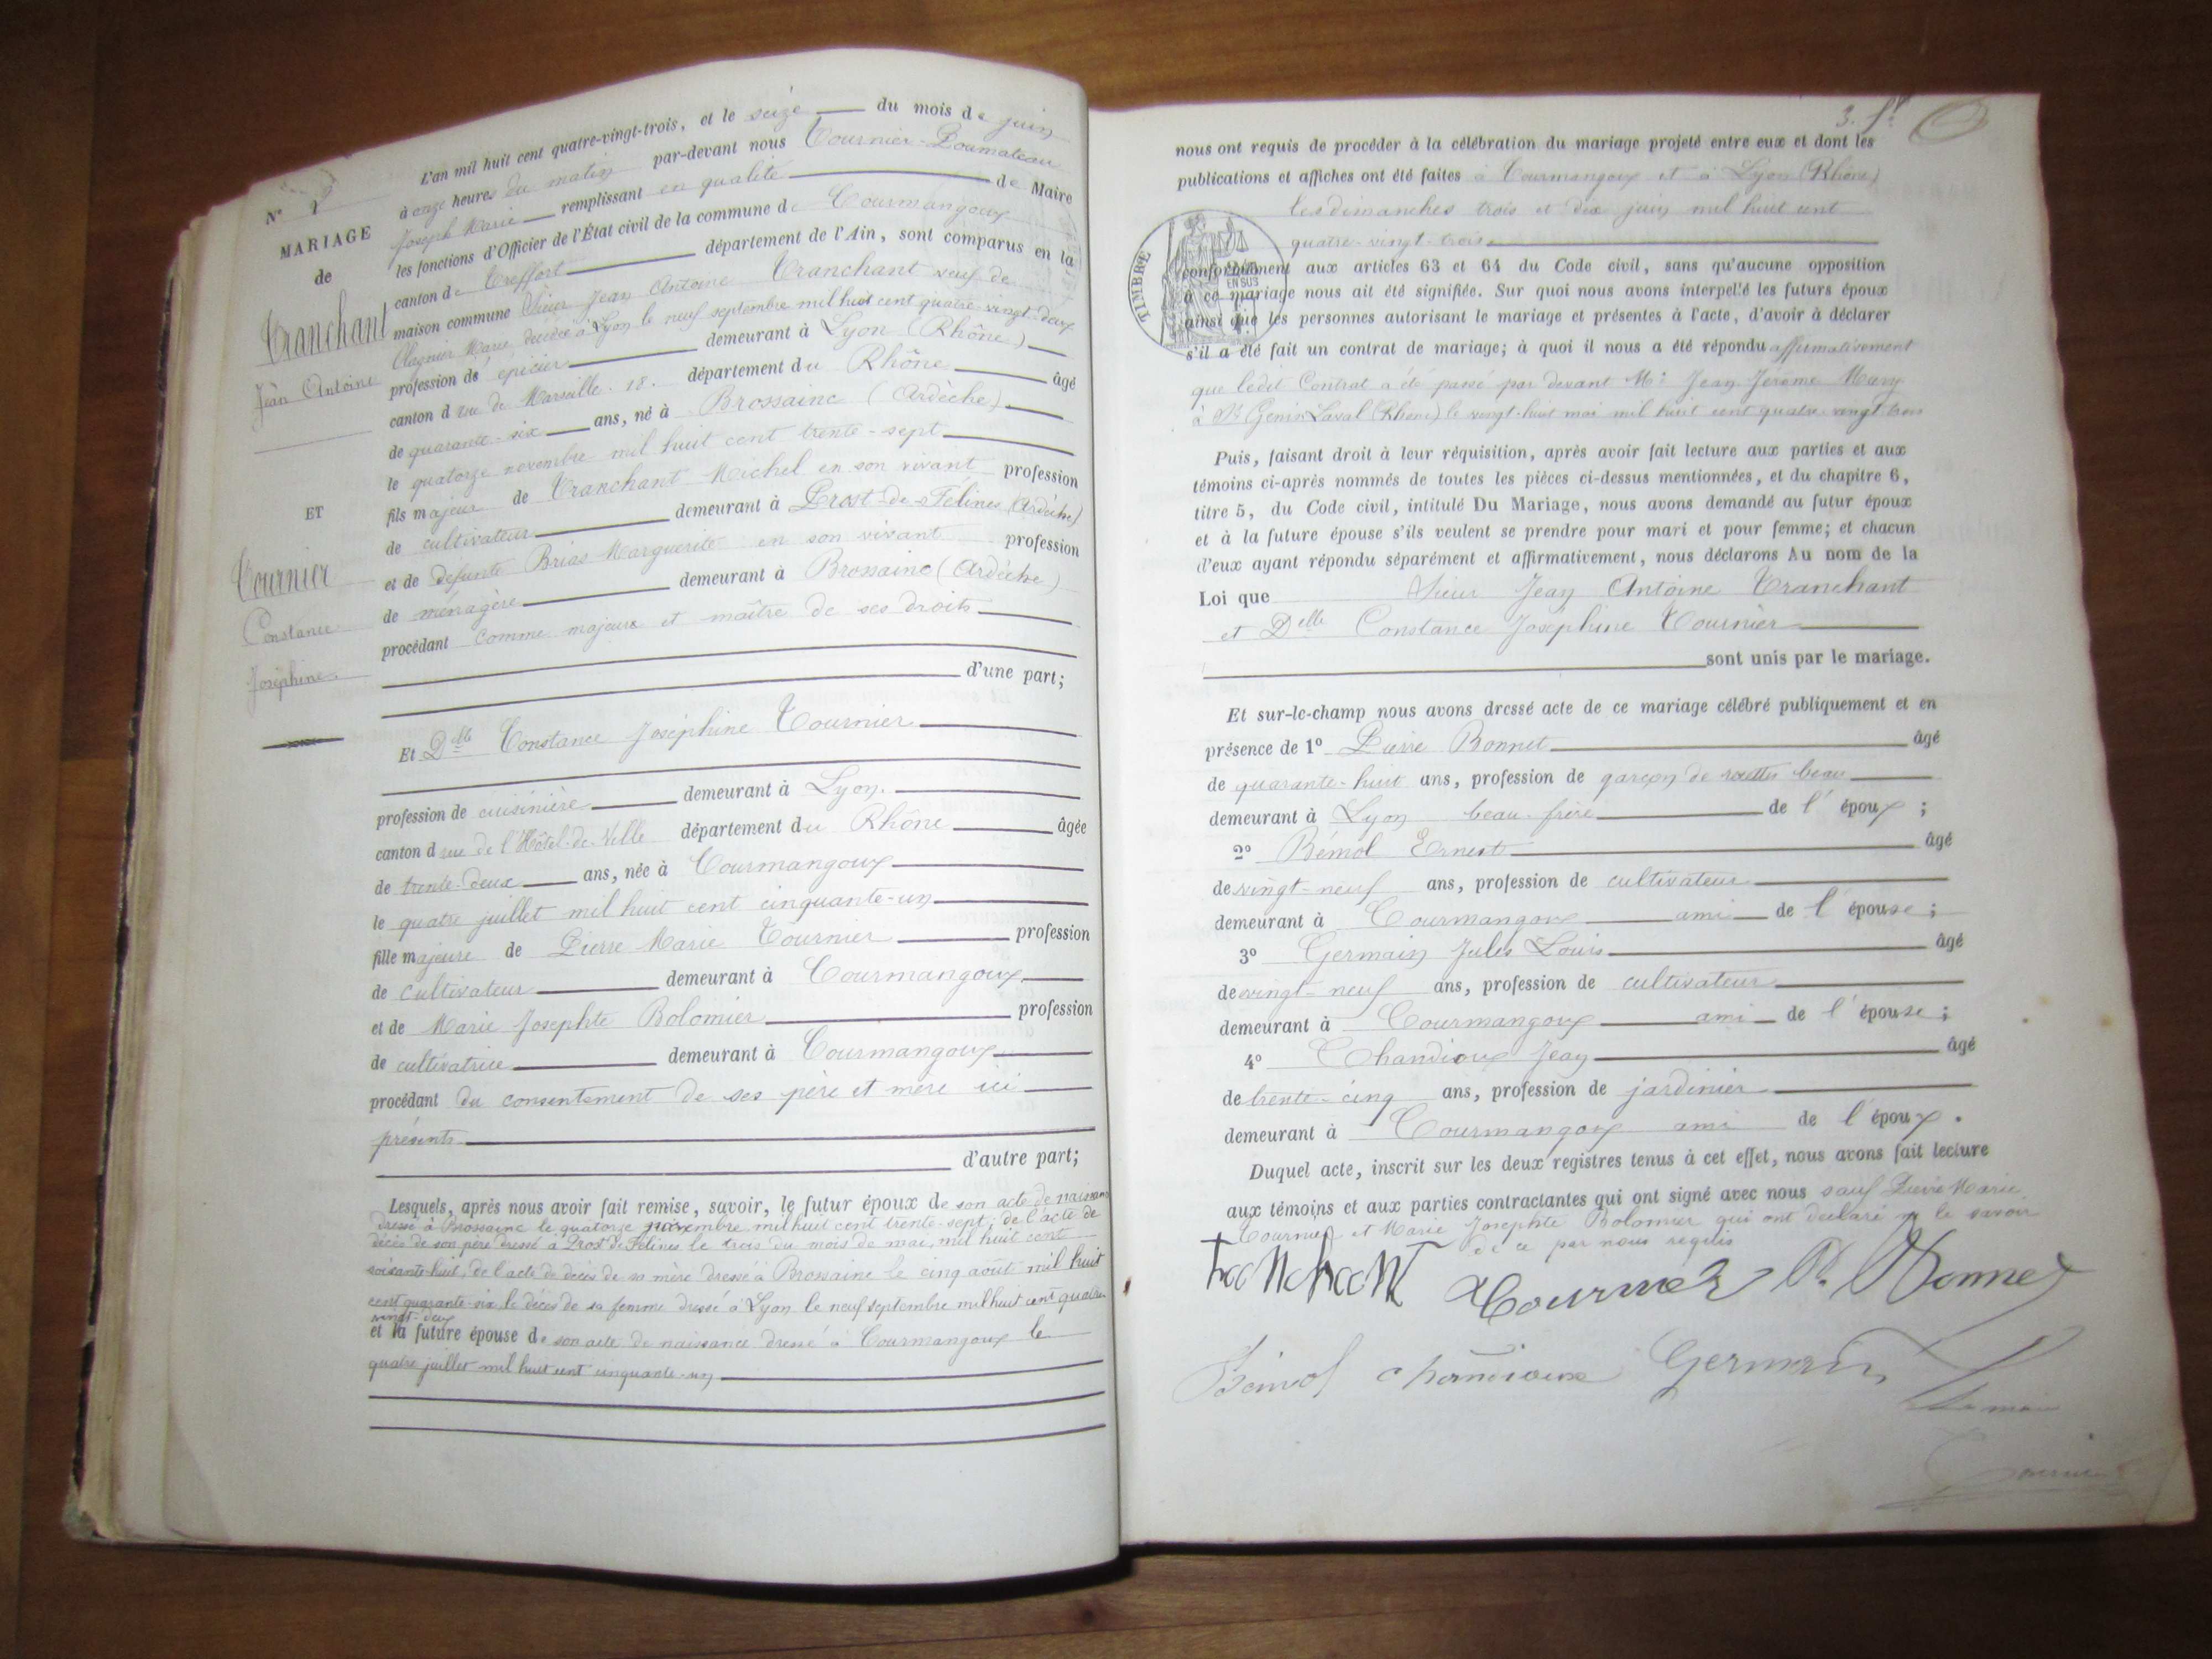 N° 1
MARIAGE
de
Tranchant
Jean Antoine
ET
Tournier
Constance
Joséphine
L'an mil huit cent quatre-vingt-trois, et le seize du mois de juin
à onze heures du matin par-devant nous Tournier-
Joseph Marie remplissant en qualité de Maire
les fonctions d'Officier de l'État civil de la commune de Courmangoux
canton de Treffort département de l'Ain, sont comparus en la
maison commune Sieur Jean Antoine Tranchant veuf de
Marie, décédée à Lyon le neuf septembre mil huit cent quatre-vingt-deux
profession de épicier demeurant à Lyon (Rhône)
canton d rue de Marseille. 18. département du Rhône âgé
de quarante-six ans, né à Brossainc (Ardèche)
le quatorze novembre mil huit cent trente-sept
fils majeur de Tranchant Michel en son vivant profession
de cultivateur demeurant à Prost-de-Félines (Ardèche)
et de défunte Brias Marguerite en son vivant profession
de ménagère demeurant à Brossainc (Ardèche)
procédant comme majeur et maître de ses droits
d'une part;
Et Delle Constance Joséphine Tournier
profession de cuisinière demeurant à Lyon.
canton d rue de l'Hôtel-de-Ville département du Rhône âgée
de trente-deux ans, née à Courmangoux
le quatre juillet mil huit cent cinquante-un
fille majeure de Pierre Marie Tournier profession
de cultivateur demeurant à Courmangoux
et de Marie Josephte Bolomier profession
de cultivatrice demeurant à Courmangoux
procédant du consentement de ses père et mère ici
présents
d'autre part;
Lesquels, après nous avoir fait remise, savoir, le futur époux de son acte de naissance
dressé à Brossainc le quatorze novembre mil huit cent trente-sept; de l'acte de
décès de son père dressé à Prost de Félines le trois du mois de mai, mil huit cent
soixante-huit, de l'acte de décès de sa mère dressé à Brossainc le cinq août mil huit
cent quarante-six le décès de sa femme dressé à Lyon le neuf septembre mil huit cent quatre
vingt-deux
et la future épouse de son acte de naissance dressé à Courmangoux le
quatre juillet mil huit cent cinquante-un
3.
nous ont requis de procéder à la célébration du mariage projeté entre eux et dont les
publications et affiches ont été faites à Courmangoux et à Lyon (Rhône)
les dimanches trois et dix juin mil huit cent
quatre-vingt-trois
TIMBRE
EN SUS
conformément aux articles 63 et 64 du Code civil, sans qu'aucune opposition
à ce mariage nous ait été signifiée. Sur quoi nous avons interpellé les futurs époux
ainsi que les personnes autorisant le mariage et présentes à l'acte, d'avoir à déclarer
s'il a été fait un contrat de mariage; à quoi il nous a été répondu affirmativement
que ledit Contrat a été passé par devant Me Jean Jérôme Mary
à St Genis Laval (Rhône) le vingt-huit mai mil huit cent quatre-vingt-trois
Puis, faisant droit à leur réquisition, après avoir fait lecture aux parties et aux
témoins ci-après nommés de toutes les pièces ci-dessus mentionnées, et du chapitre 6,
titre 5, du Code civil, intitulé Du Mariage, nous avons demandé au futur époux
et à la future épouse s'ils veulent se prendre pour mari et pour femme; et chacun
d'eux ayant répondu séparément et affirmativement, nous déclarons Au nom de la
Loi que Sieur Jean Antoine Tranchant
et Delle Constance Joséphine Tournier
sont unis par le mariage.
Et sur-le-champ nous avons dressé acte de ce mariage célébré publiquement et en
présence de 1° Pierre Bonnet âgé
de quarante-huit ans, profession de garçon de recettes beau
demeurant à Lyon beau-frère de l'époux;
2° Bémol Ernest âgé
de vingt-neuf ans, profession de cultivateur
demeurant à Courmangoux ami de l'épouse;
3° Germain Jules Louis âgé
de vingt-neuf ans, profession de cultivateur
demeurant à Courmangoux ami de l'épouse;
4° Chandioux Jean âgé
de trente-cinq ans, profession de jardinier
demeurant à Courmangoux ami de l'époux.
Duquel acte, inscrit sur les deux registres tenus à cet effet, nous avons fait lecture
aux témoins et aux parties contractantes qui ont signé avec nous sauf Pierre Marie
Tournier et Marie Josephte Bolomier qui ont déclaré ne le savoir
de ce par nous requis
Tranchant C Tournier P. Bonnet
Bémol Chandioux Germain
Le maire
Tournier